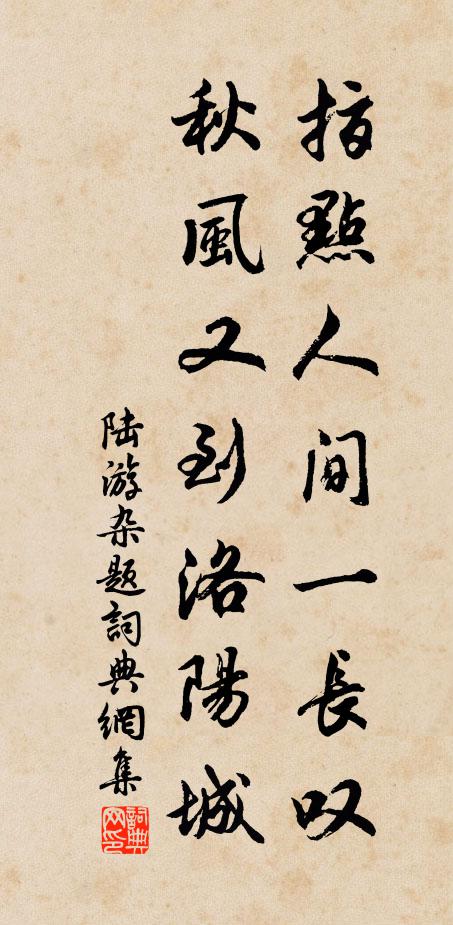 指點人間一長叹
秋風又到洛陽城
陆游杂题詞典網集
詞典网印